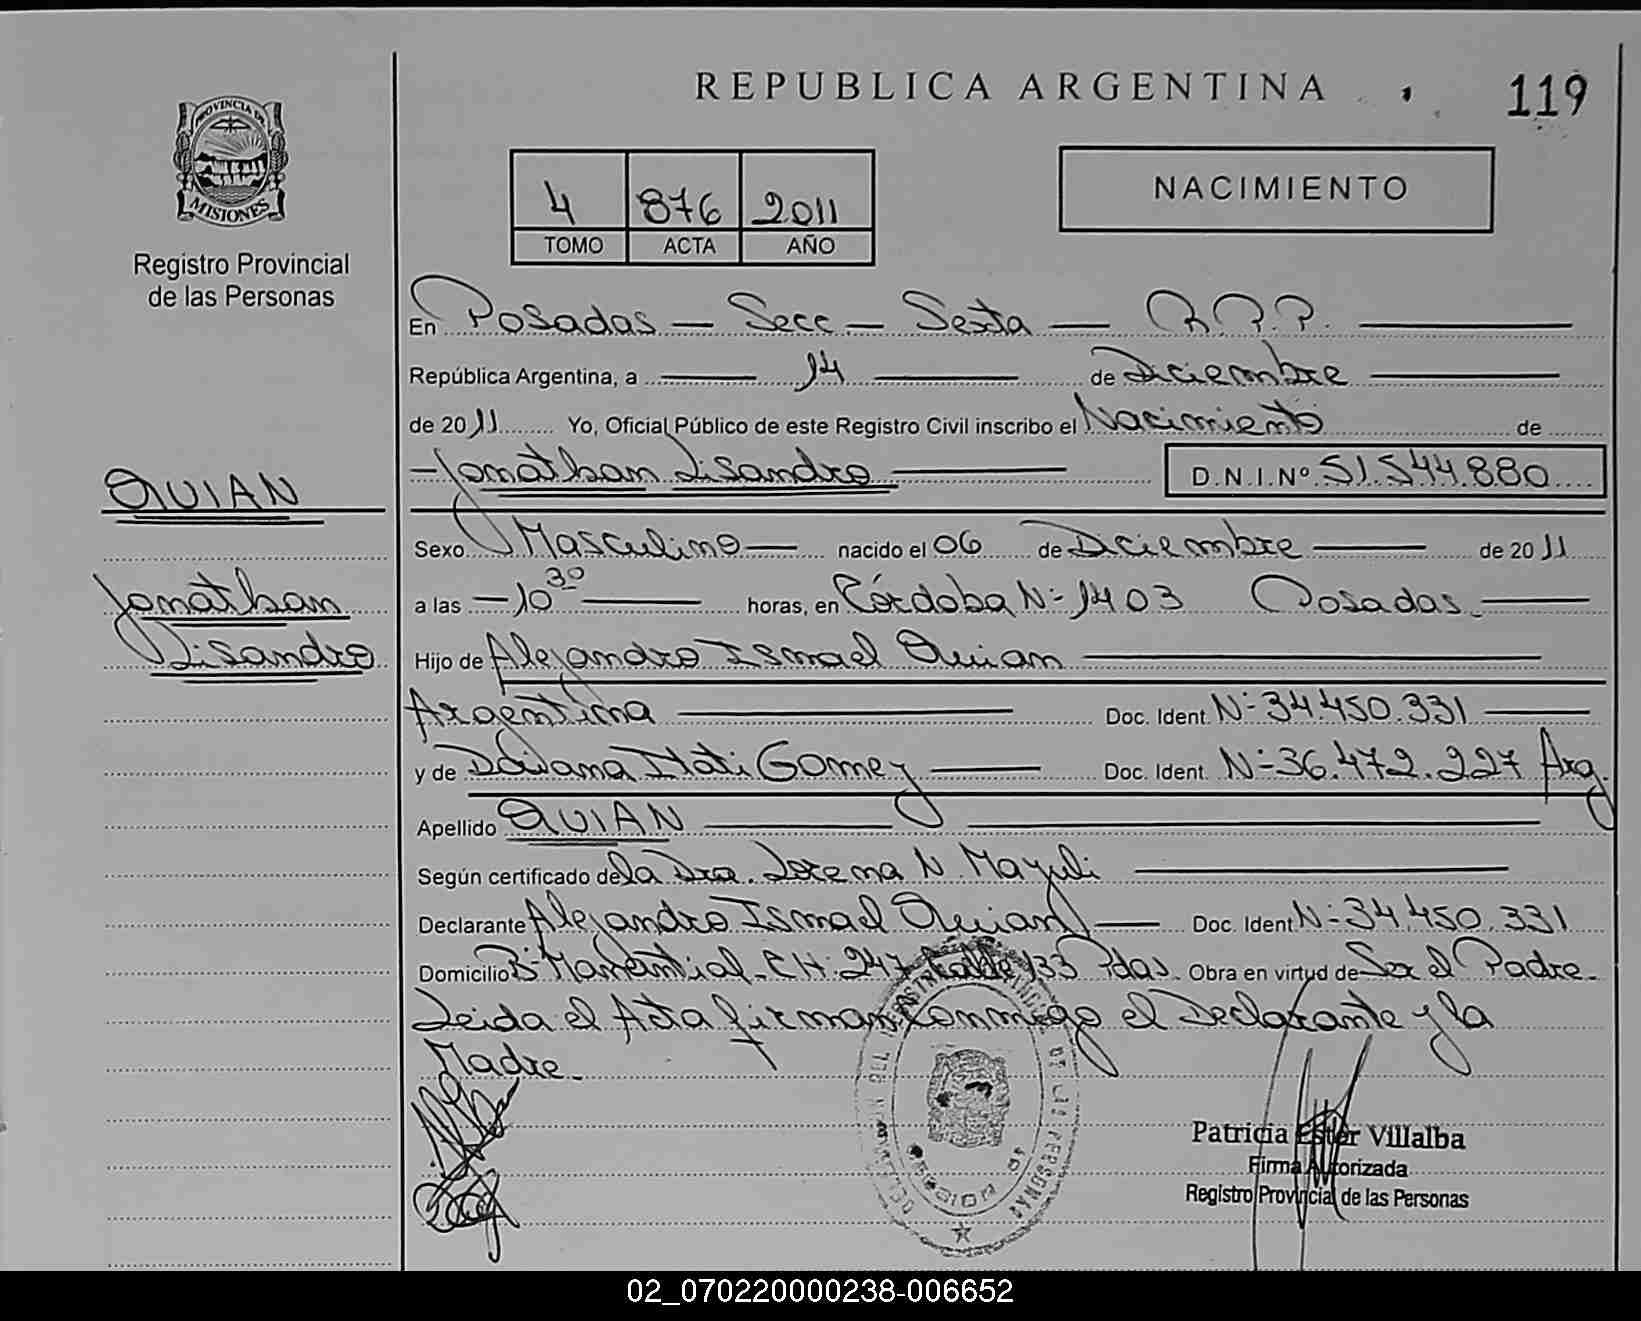 REPUBLICA ARGENTINA
119
PROVINCIA DE
MISIONES
Registro Provincial
de las Personas
4 876 2011
TOMO ACTA AÑO
NACIMIENTO
En Posadas — Secc — Sexta — R.P.P.
República Argentina, a 14 de Diciembre
de 2011 Yo, Oficial Público de este Registro Civil inscribo el Nacimiento de
Jonathan Lisandro D.N.I.Nº 51.544.880
QUIAN
Sexo Masculino — nacido el 06 de Diciembre de 2011
Jonathan
a las — 10 30 horas, en Córdoba Nº 1403 Posadas
Lisandro
Hijo de Alejandro Ismael Quian
Argentina Doc. Ident. Nº 34.450.331
y de Itati Gomez Doc. Ident. Nº 36.472.227 Arg.
Apellido QUIAN
Según certificado de la Dra. Lorena N.
Declarante Alejandro Ismael Quian Doc. Ident Nº 34.450.331
Domicilio Bº Manantial - CH. 247 133 Pdas. Obra en virtud de Ser el Padre.
Leida el Acta firman conmigo el Declarante y la
Madre.
Patricia Ester Villalba
Firma Autorizada
Registro Provincial de las Personas
02_070220000238-006652